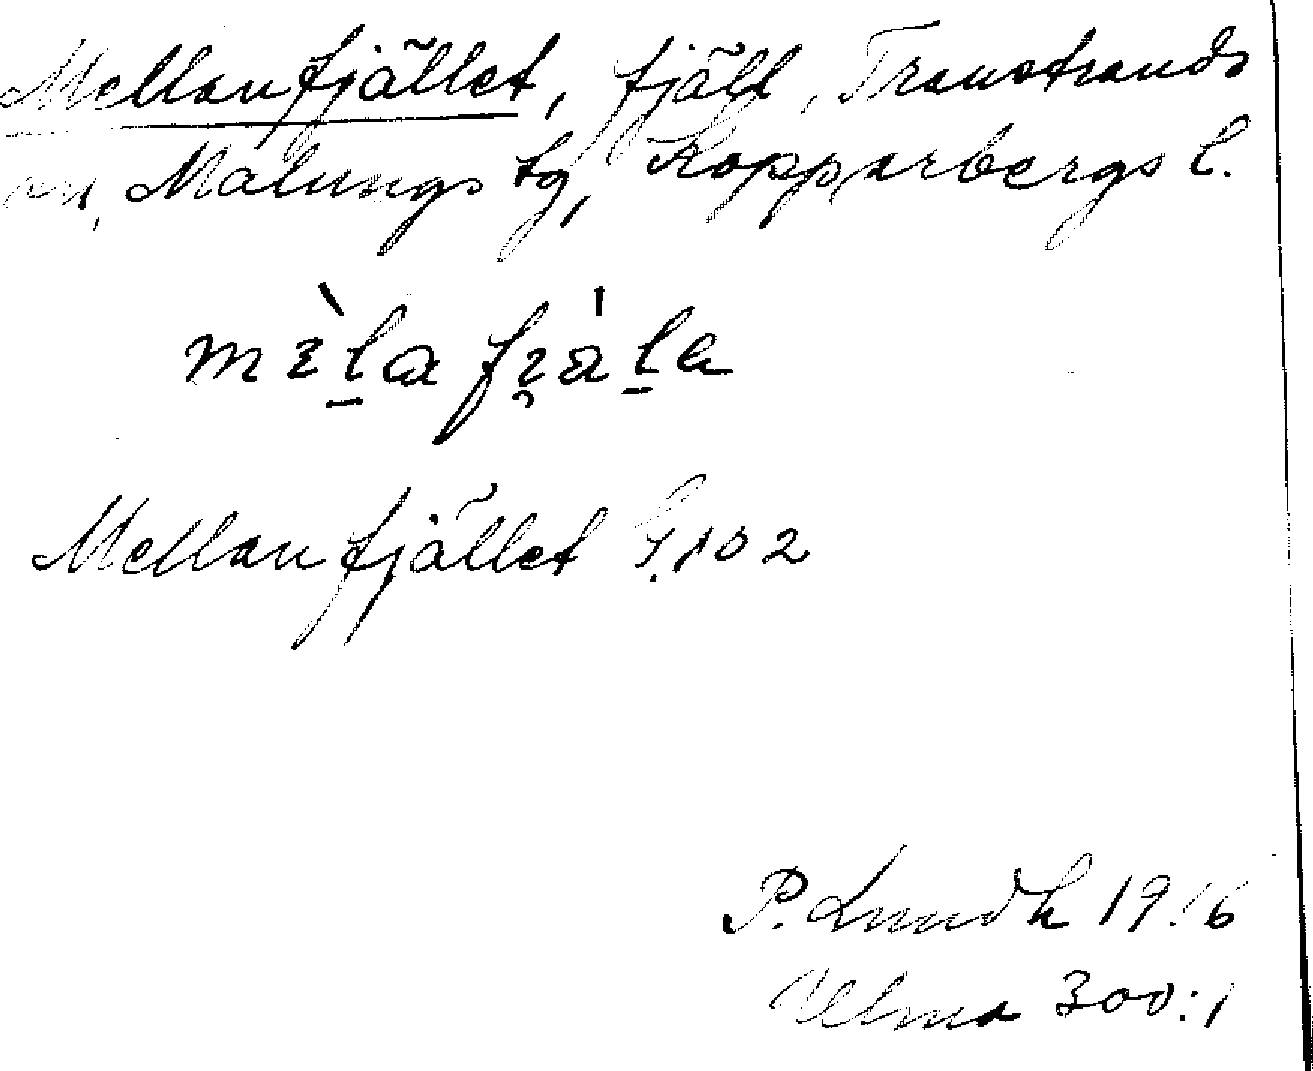 Mellanfjället, fjäll, Transtrands
sn, Malungs tg, Kopparbergs l.
Mellanfjället G.102
P. Lundh 1916
Ulma 300:1